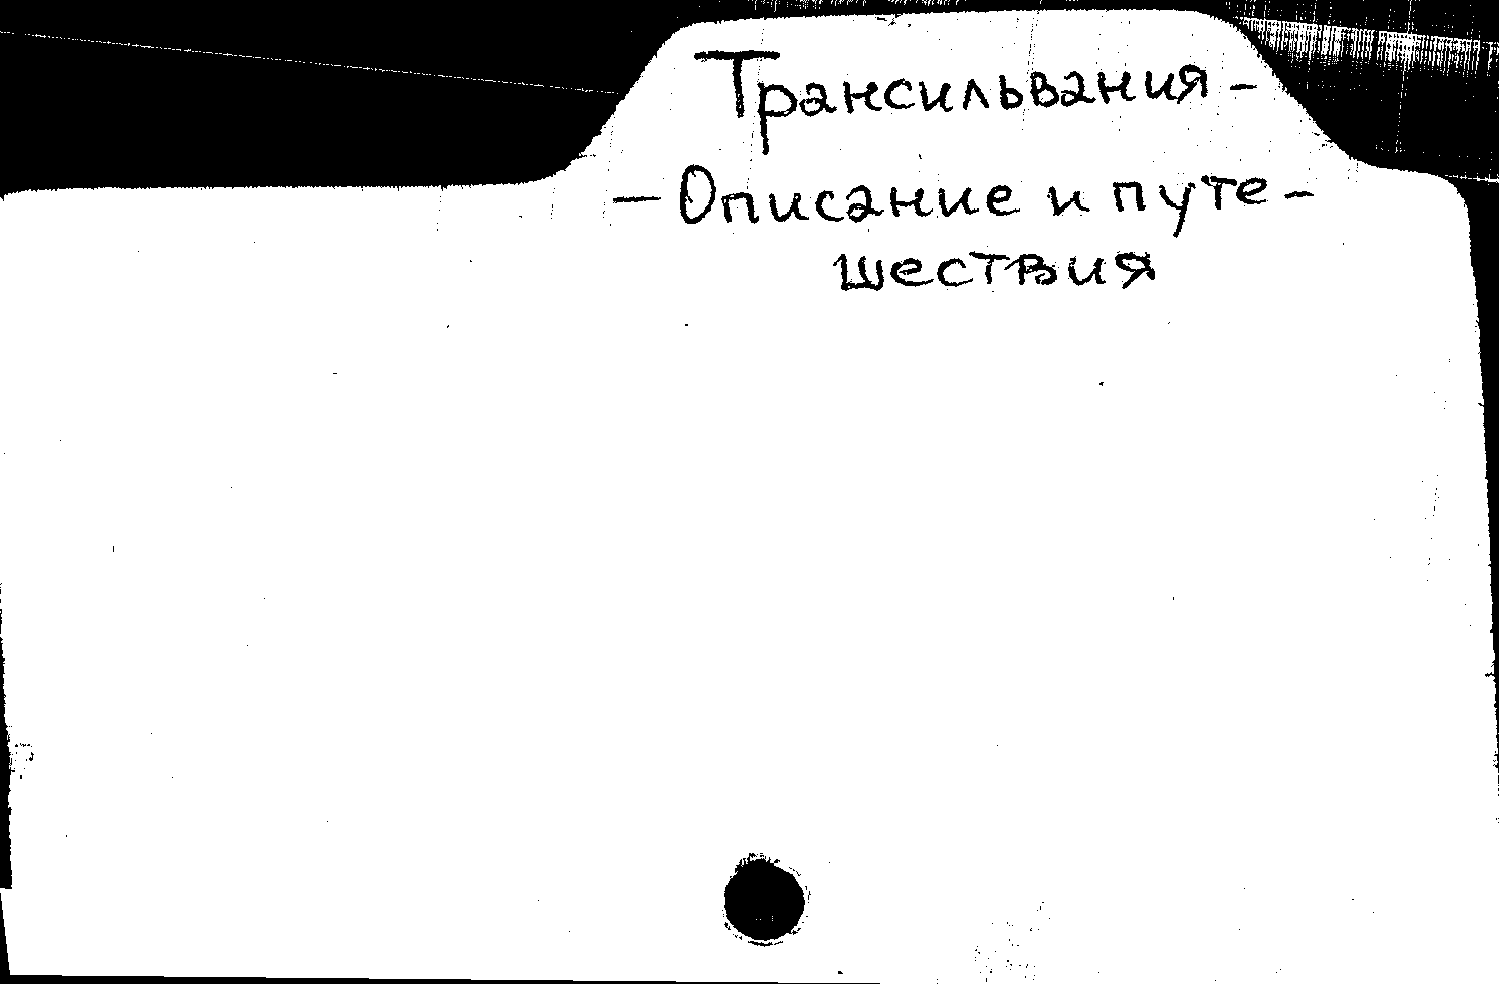 Трансильвания -
- Описание и путе -
шествия